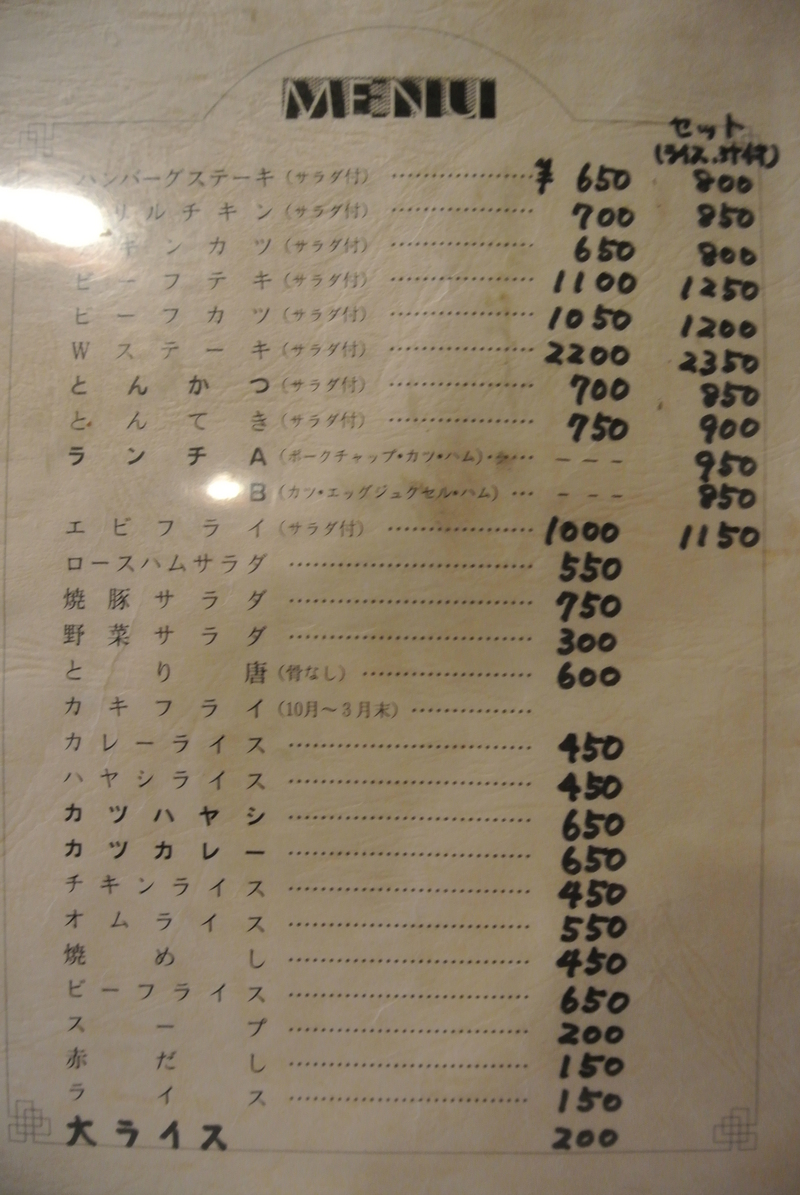 MENU
セット
(ライス.汁付)
ハンバーグステーキ(サラダ付) ¥ 650 800
リルチキン(サラダ付) 700 850
キンカツ(サラダ付) 650 800
ビーフテキ(サラダ付) 1100 1250
ビーフカツ(サラダ付) 1050 1200
Wステーキ(サラダ付) 2200 2350
とんかつ(サラダ付) 700 850
とんてき(サラダ付) 750 900
ランチA(ポークチャップ・カツ・ハム) --- 950
B(カツ・エッグジュグセル・ハム) --- 850
エビフライ(サラダ付) 1000 1150
ロースハムサラダ 550
焼豚サラダ 750
野菜サラダ 300
とり唐(骨なし) 600
カキフライ(10月〜3月末)
カレーライス 450
ハヤシライス 450
カツハヤシ 650
カツカレー 650
チキンライス 450
オムライス 550
焼めし 450
ビーフライス 650
スープ 200
赤だし 150
ライス 150
大ライス 200